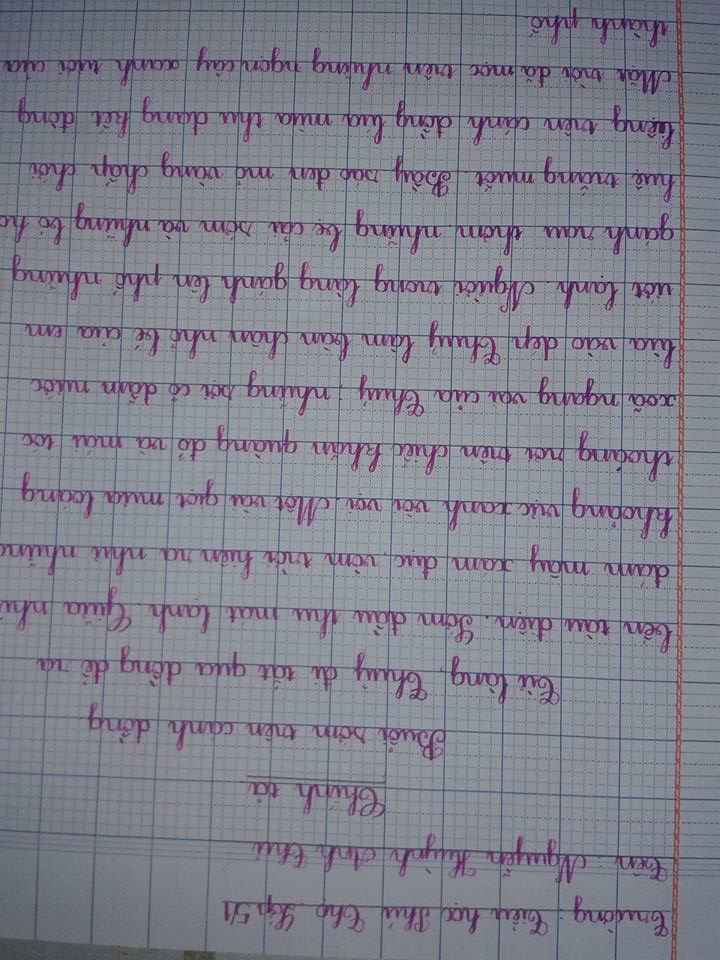 Trường: Tiểu học Phú Thọ Lớp 5/1
Tên: Nguyễn Huỳnh Anh Thi
Chính tả
Buổi sớm trên cánh đồng
Từ làng, Thuỷ đi tắt qua đồng để ra
bến tàu điện. Sớm đầu thu mát lạnh. Giữa nh
đám mây xám đục, vòm trời hiện ra như nhữn
khoảng vực xanh vời vợi. Một vài giọt mưa loáng
thoáng rơi trên chiếc khăn quàng đỏ và mái tóc
xoã ngang vai của Thuỷ; những sợi cỏ đẫm nước
lùa vào dép Thuỷ làm bàn chân nhỏ bé của em
ướt lạnh. Người trong làng gánh lên phố những
gánh rau thơm, những bẹ cải sớm và những bó ho
huệ trắng muốt. Bầy sáo đen mỏ vàng chấp chới
liệng trên cánh đồng lúa mùa thu đang kết đòng
Mặt trời đã mọc trên những ngọn cây xanh tươi của
thành phố.